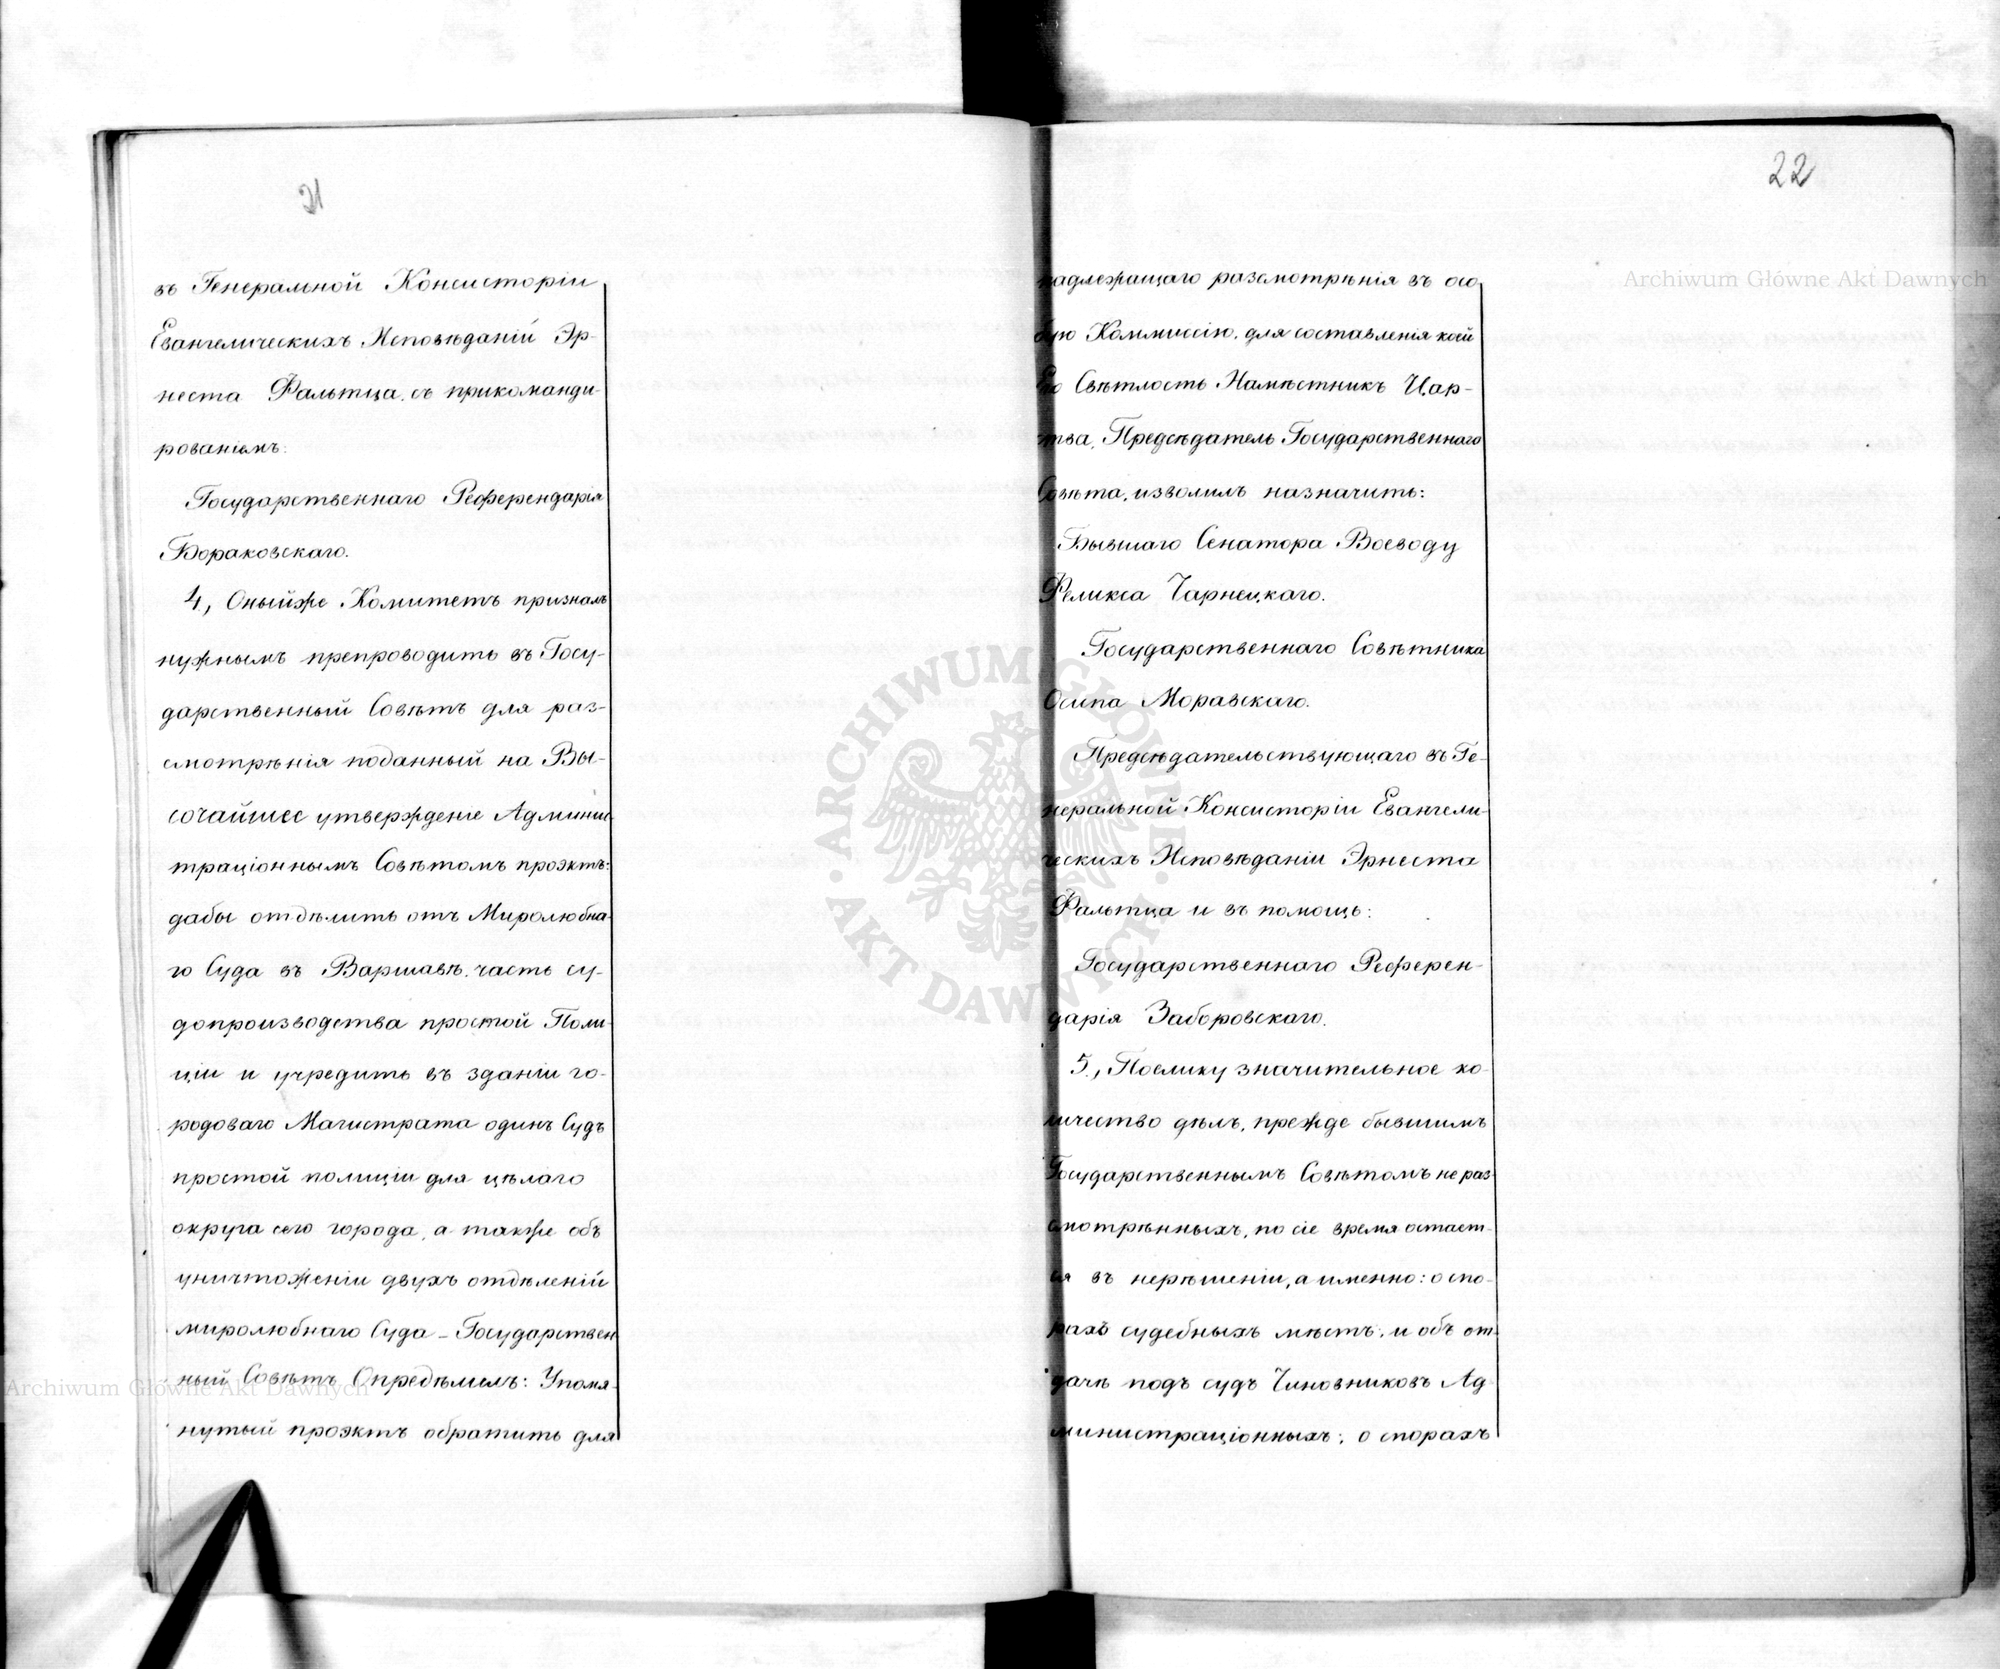 21
въ Генеральной Консисторіи
Евангелическихъ Исповѣданій Эр-
неста Фальтца, съ прикоманди-
рованіемъ:
Государственнаго Референдарія
Бораковскаго.
4, Оныйже Комитетъ призналъ
нужнымъ препроводить въ Госу-
дарственный Совѣтъ для раз-
смотрѣнія поданный на Вы-
сочайшее утвержденіе Админис-
траціоннымъ Совѣтомъ проэктъ:
дабы отдѣлить отъ Миролюбна-
го Суда въ Варшавѣ, часть су-
допроизводства простой Поли-
ціи и учредить въ зданіи го-
родоваго Магистрата одинъ Судъ
простой полиціи для цѣлаго
округа сего города, а также объ
уничтоженіи двухъ отдѣленій
миролюбнаго Суда – Государствен
ный Совѣтъ Опредѣлилъ: Упомя-
нутый проэктъ обратить для
22
надлежащаго разсмотрѣнія въ осо
бую Коммиссію, для составленія коей
Его Свѣтлость Намѣстникъ Цар-
ства, Предсѣдатель Государственнаго
Совѣта, изволилъ назначить:
Бывшаго Сенатора Воеводу
Феликса Чарнецкаго.
Государственнаго Совѣтника
Осипа Моравскаго.
Предсѣдательствующаго въ Ге-
неральной Консисторіи Евангели-
ческихъ Исповѣданіи Эрнеста
Фальтца и въ помощь:
Государственнаго Референ-
дарія Заборовскаго.
5, Поелику значительное ко-
личество дѣлъ, прежде бывшимъ
Государственнымъ Совѣтомъ не раз-
смотрѣнныхъ, по сіе время остает-
ся въ нерѣшеніи, а именно: о спо-
рахъ судебныхъ мѣстъ; и объ от-
дачѣ подъ судъ Чиновниковъ Ад-
министраціонныхъ; о спорахъ
Archiwum Główne Akt Dawnych
Archiwum Główne Akt Dawnych
ARCHIWUM GŁÓWNE
AKT DAWNYCH